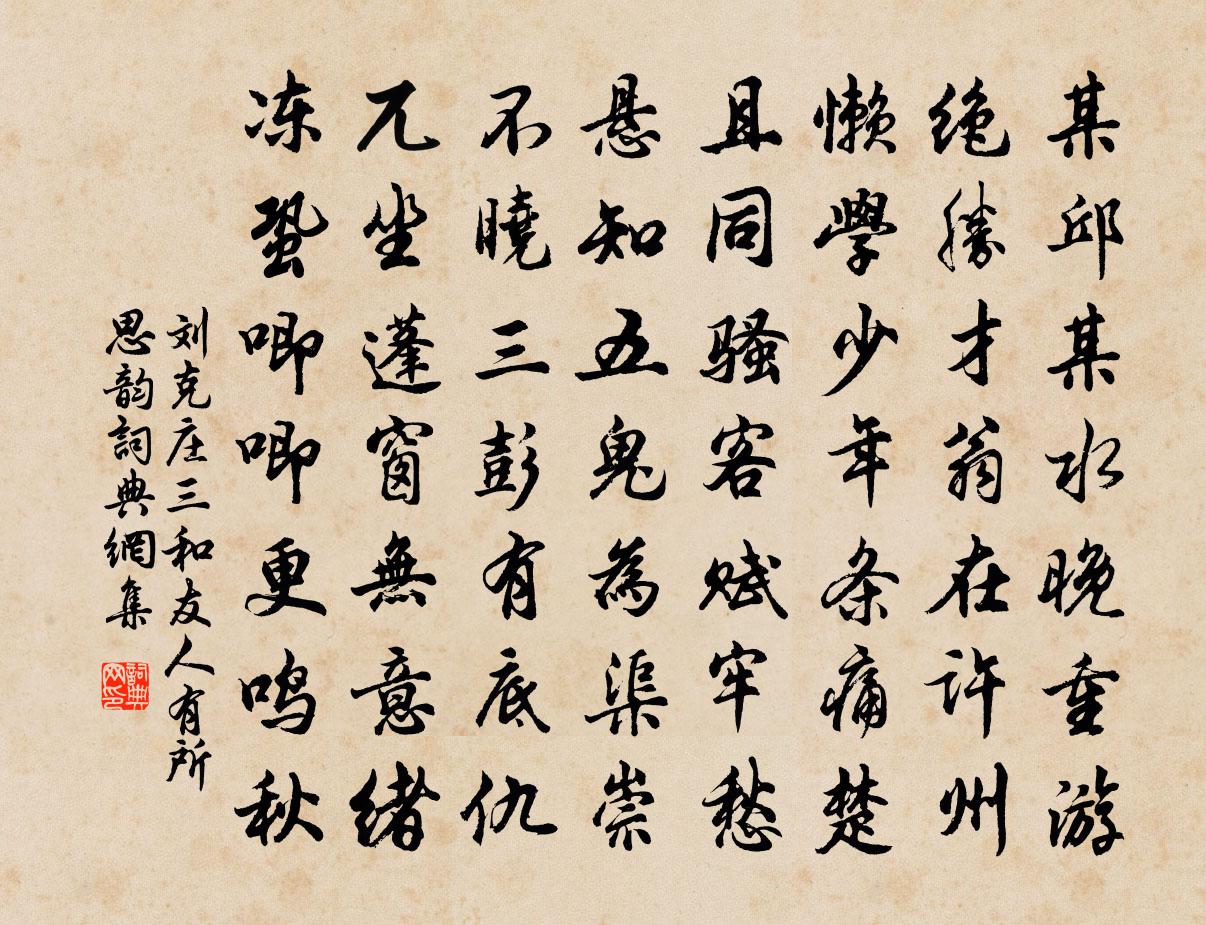 某邱某水晚重游
绝勝才翁在许州
懒學少年条痛楚
且同骚客赋牢愁
悬知五鬼為渠崇
不曉三彭有底仇
兀坐蓬窗無意绪
冻蛩唧唧更鸣秋
刘克庄三和友人有所
思韵詞典網集
詞典网印